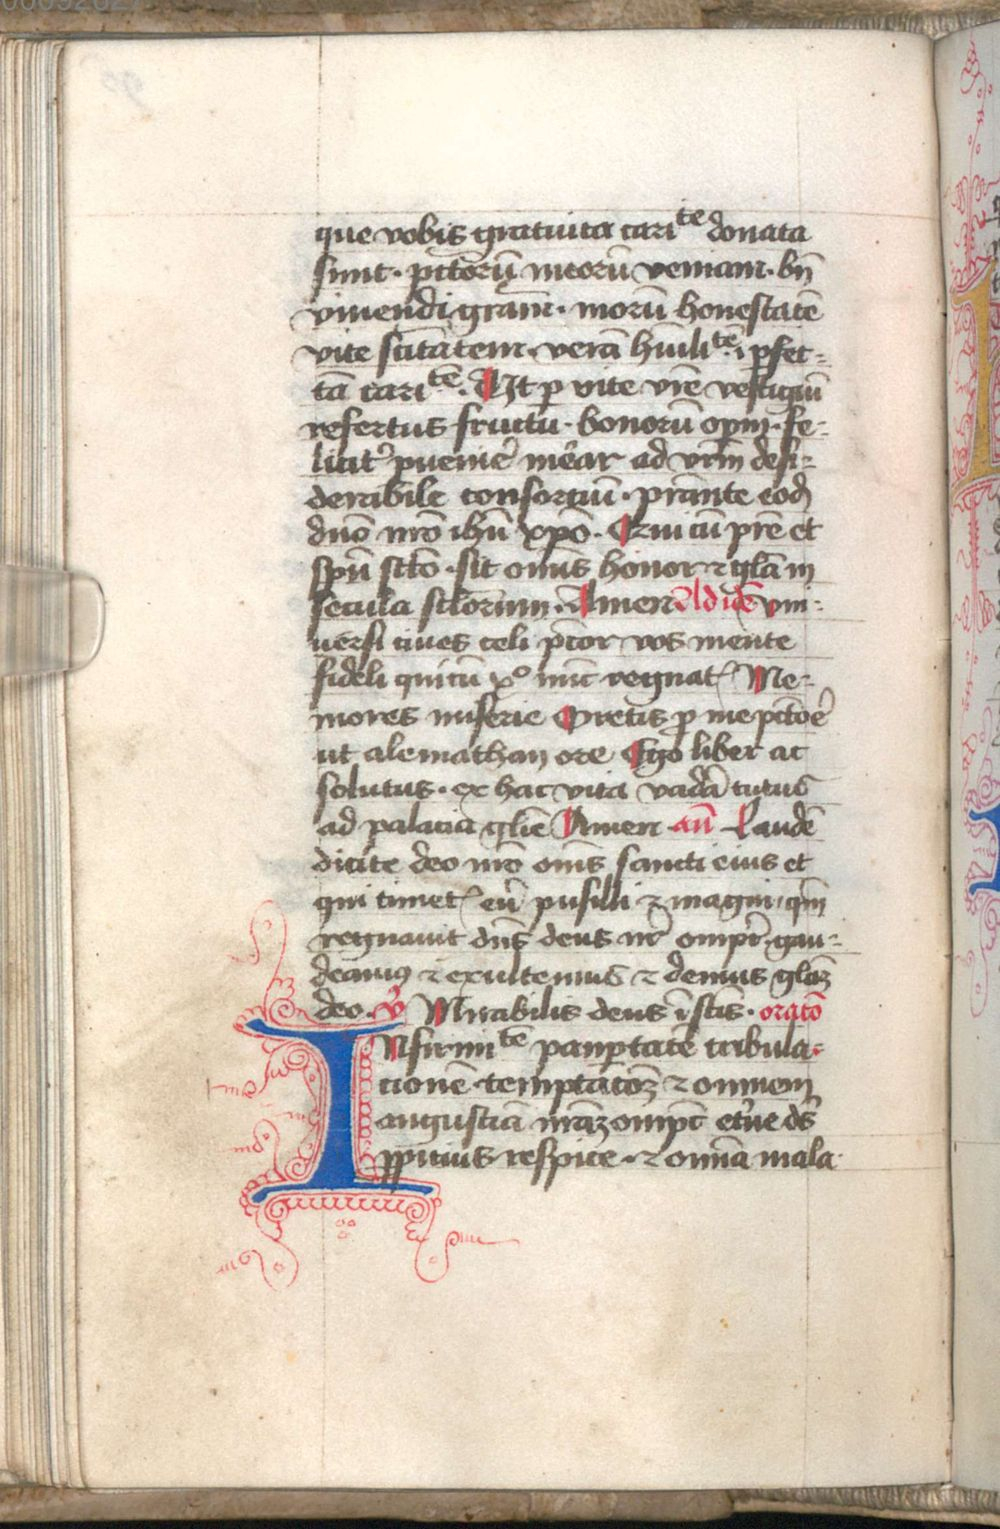 que vobis gratuita cari^te donata
sunt · pct̄orū meorū veniam · bn̄
vivendi gram̄ · morū honestatē
vite sc̄itatem · verā hūili^tē · ⁊ p̱fec-
tā cari^tē · Ut p̱ vite vr̄e vestigiū
refertus fructu · bonorū opm̄ · fe-
licit᷑ pueniē mear ad vrm̄ desi-
derabile consortiū · prān̄te eod̄
dn̄o nr̄o ihū xp̄o · Cui cū pr̄e et
spū sc̄to · sit om̄is honor ⁊ gl̄a in
secula sc̄lorum · Amen Ad idē vni-
versi cives celi pc̄tor vos mente
fideli qui cū x^o nūc regnat᷑ Me-
mores miserie Oretis p̱ me pct̄oē
ut alemathan ore Ego liber ac
solutus · ex hac vita vadā tutus
ad palacia gl̄ie Amen an̄ Laudē
dicite deo nr̄o om̄s sancti eius et
qui timet᷑ eū pusilli ⁊ magni qm̄
regnavit dn̄s deus nr̄ omp̄c̄ gau-
deamus ⁊ exultemus ⁊ demus glaꝫ
deo · v̄ Mirabilis deus ī sc̄tis · oratō
INfirmi^tē paup̱tatē tribula-
cionē temptac̄oꝫ ⁊ omnem
angustiā nr̄aꝫ omp̄c̄ et̄ne ds̄
ꝓpicius respice · ⁊ om̄ia mala